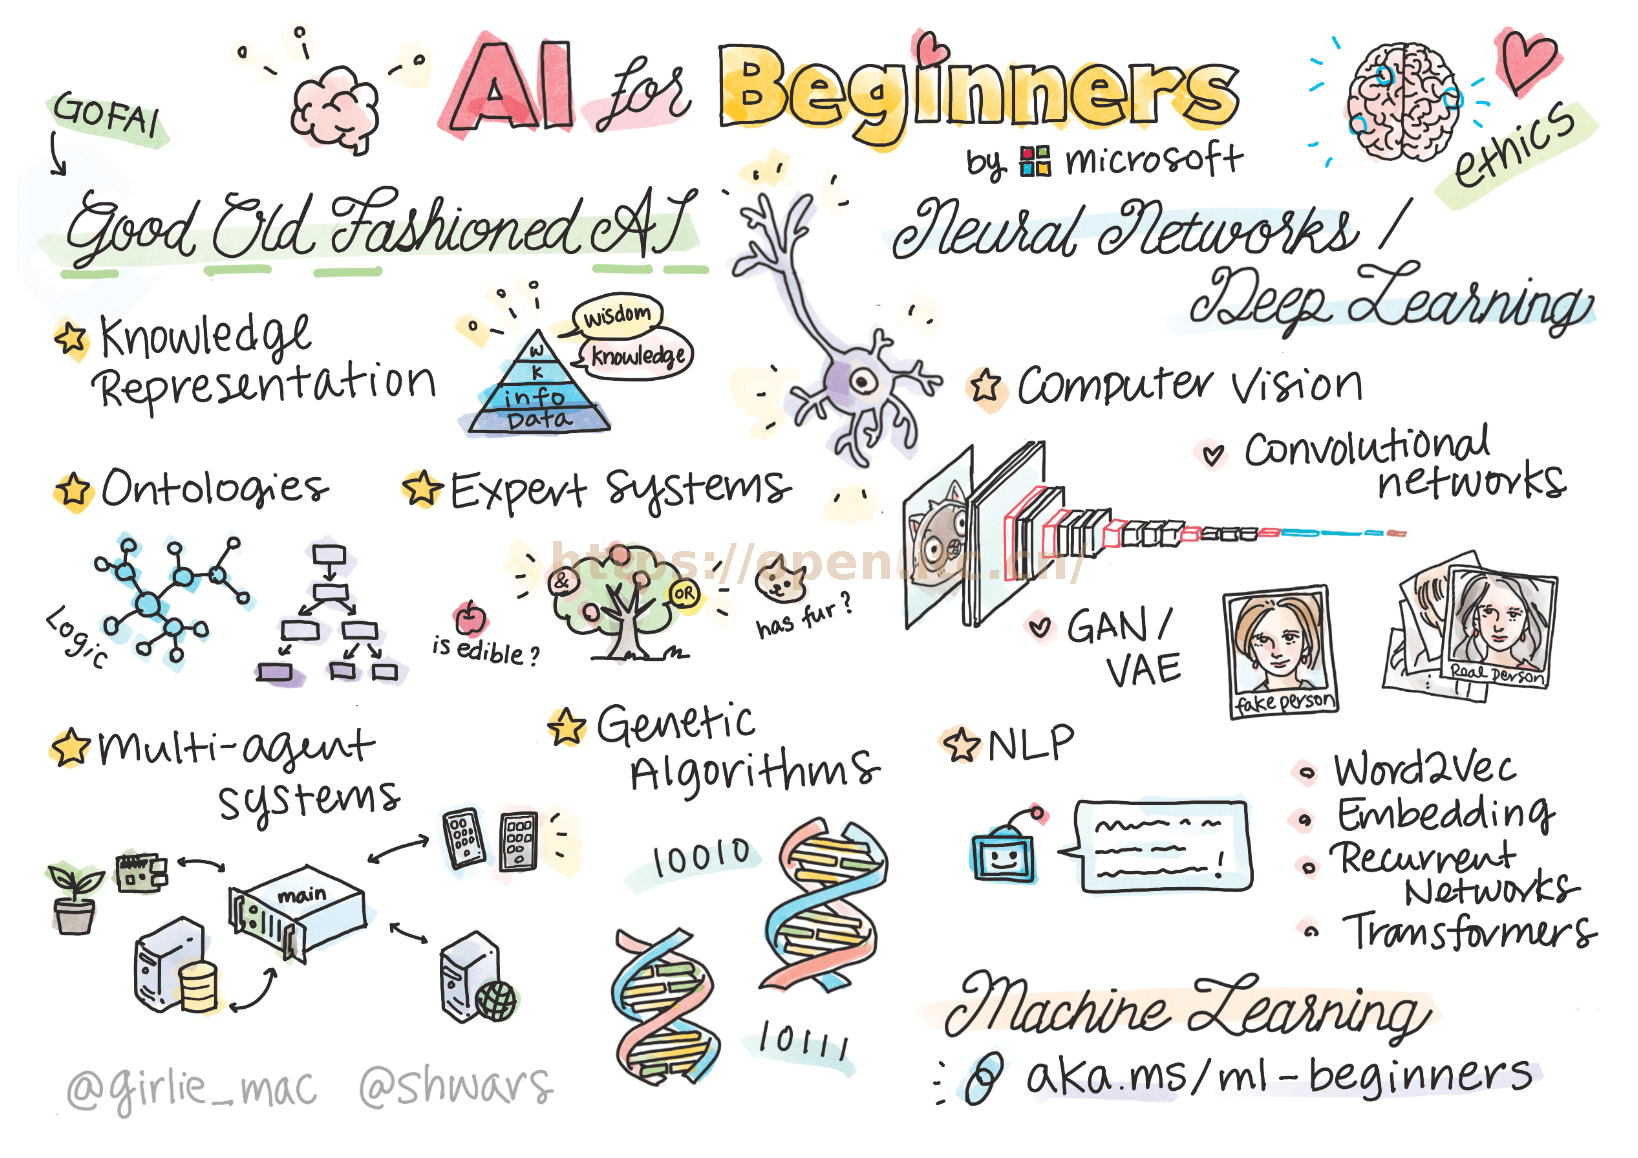 AI for Beginners
by microsoft
GOFAI
Good Old Fashioned AI
Knowledge
Representation
wisdom
knowledge
W
K
info
Data
Ontologies
Logic
Expert systems
&
OR
is edible?
has fur?
Multi-agent
systems
main
Genetic
Algorithms
10010
10111
@girlie_mac @shwars
ethics
Neural Networks /
Deep Learning
Computer Vision
Convolutional
networks
GAN /
VAE
fake person
Real person
NLP
Word2Vec
Embedding
Recurrent
Networks
Transformers
Machine Learning
aka.ms/ml-beginners